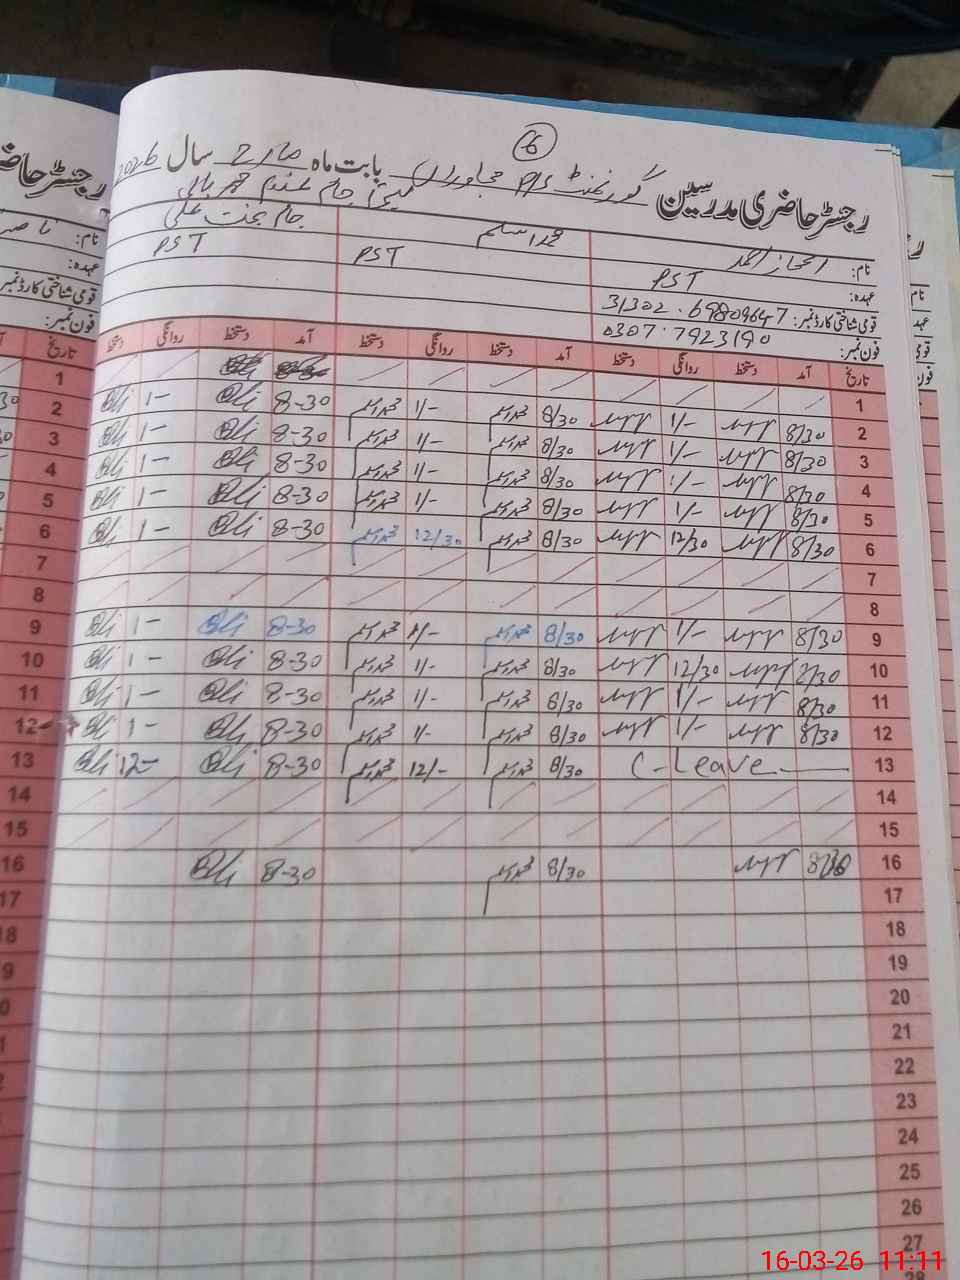 6
رجسٹر حاضری مدرسین گورنمنٹ P/S بابت ماہ مارچ سال 2026
نام: اعجاز احمد محمد اسلم جام
عہدہ: PST PST PST
قومی شناختی کارڈ نمبر: 31302.69809647
فون نمبر: 0307.7923190
تاریخ آمد دستخط روانگی دستخط آمد دستخط روانگی دستخط آمد دستخط روانگی دستخط
1
2 8/30 1/- 8/30 محمد اسلم 1/- محمد اسلم 8-30 Ali 1- Ali
3 8/30 1/- 8/30 محمد اسلم 1/- محمد اسلم 8-30 Ali 1- Ali
4 8/30 1/- 8/30 محمد اسلم 1/- محمد اسلم 8-30 Ali 1- Ali
5 8/30 1/- 8/30 محمد اسلم 1/- محمد اسلم 8-30 Ali 1- Ali
6 8/30 12/30 8/30 محمد اسلم 12/30 محمد اسلم 8-30 Ali 1- Ali
7
8
9 8/30 1/- 8/30 محمد اسلم 1/- محمد اسلم 8-30 Ali 1- Ali
10 8/30 12/30 8/30 محمد اسلم 1/- محمد اسلم 8-30 Ali 1- Ali
11 8/30 1/- 8/30 محمد اسلم 1/- محمد اسلم 8-30 Ali 1- Ali
12 8/30 1/- 8/30 محمد اسلم 1/- محمد اسلم 8-30 Ali 1- Ali
13 C-Leave 8/30 محمد اسلم 12/- محمد اسلم 8-30 Ali 12- Ali
14
15
16 8/30 8/30 محمد اسلم 8-30 Ali
17
18
19
20
21
22
23
24
25
26
27
28
16-03-26 11:11